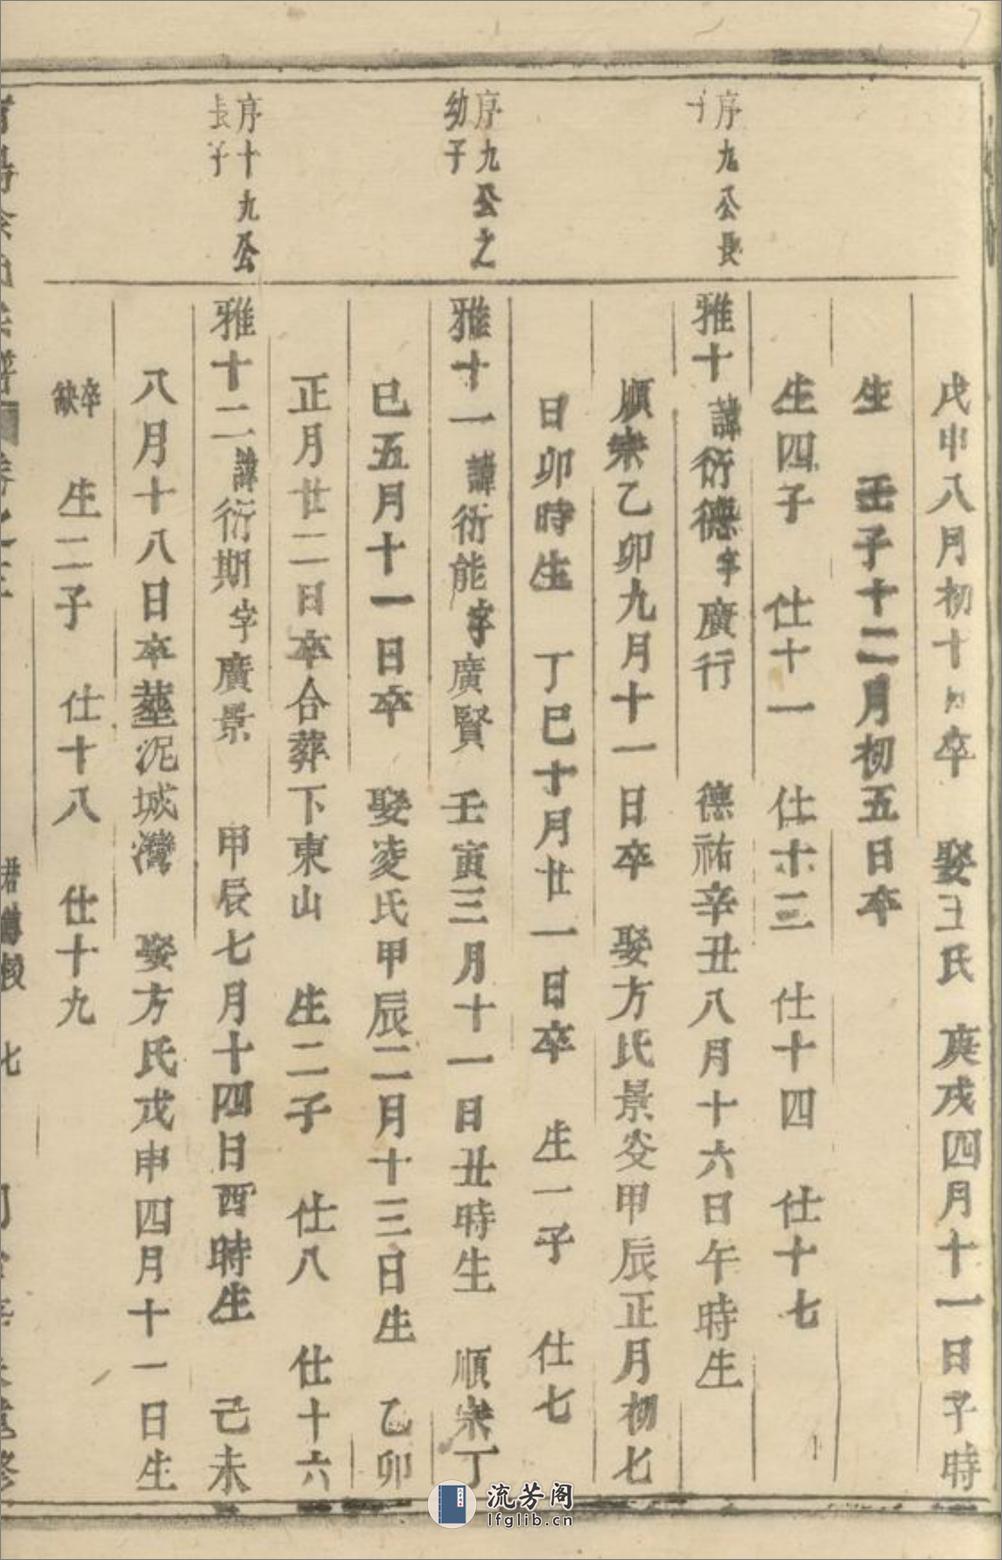 戊申八月初十日卒 娶王氏 庚戌四月十一日子時
生 壬子十二月初五日卒
生四子 仕十一 仕十三 仕十四 仕十七
序九公長
子
雅十諱衍德字廣行 德祐辛丑八月十六日午時生
順宗乙卯九月十一日卒 娶方氏景炎甲辰正月初七
日卯時生 丁巳十月廿一日卒 生一子 仕七
序九公之
幼子
雅十一諱衍能字廣賢 壬寅三月十一日丑時生 順宗丁
巳五月十一日卒 娶凌氏甲辰二月十三日生 乙卯
正月廿二日卒合葬下東山 生二子 仕八 仕十六
序十九公
長子
雅十二諱衍期字廣景 甲辰七月十四日酉時生 己未
八月十八日卒塟泥城灣 娶方氏戊申四月十一日生
卒
缺 生二子 仕十八 仕十九
七
流芳阁
lfglib.cn